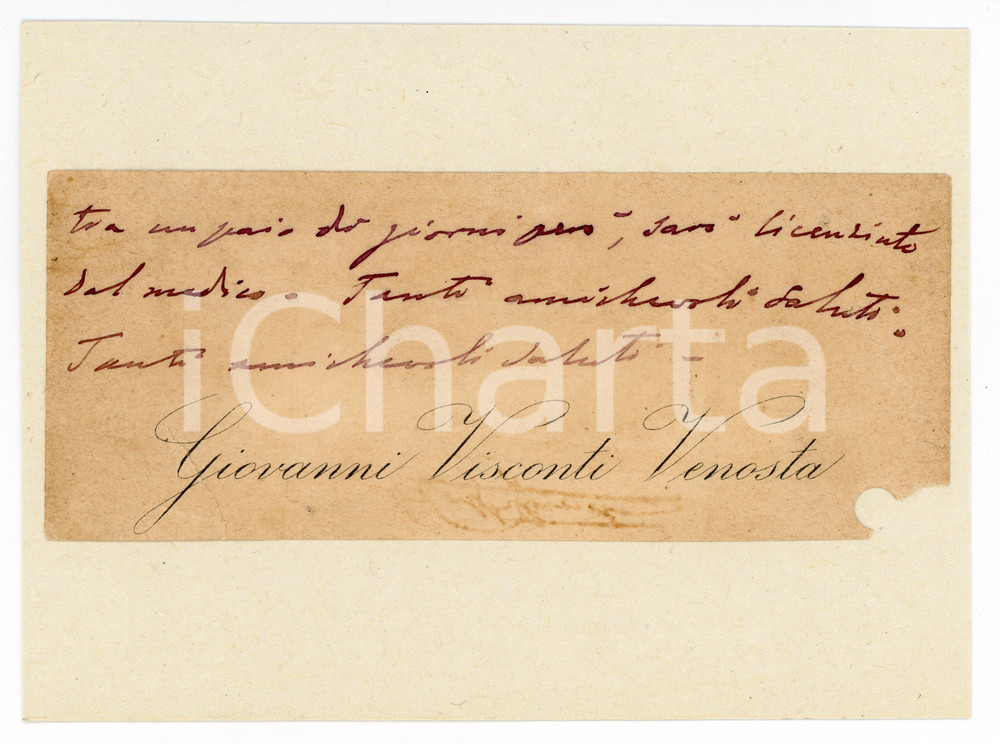 tra un paio di giorni però, sarò licenziato
dal medico. Tanti amichevoli saluti.
Tanti amichevoli saluti –
iCharta
Giovanni Visconti Venosta